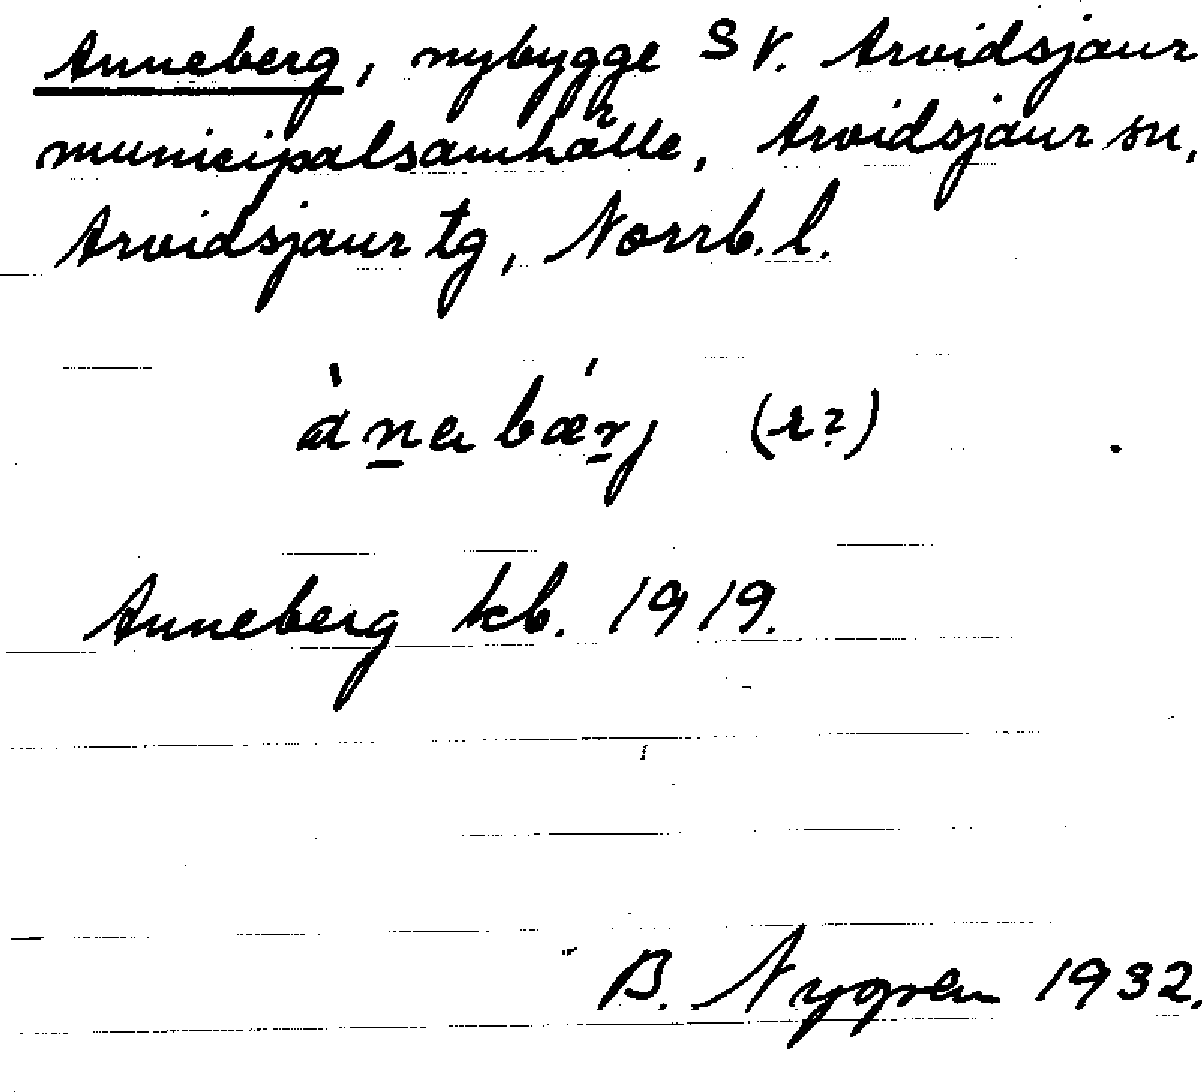 Anneberg, nybygge SV. Arvidsjaur
municipalsamhälle, Arvidsjaur sn,
Arvidsjaur tg, Norrb. l.
ànabǽrj (r?)
Anneberg kb. 1919.
B. Nygren 1932.